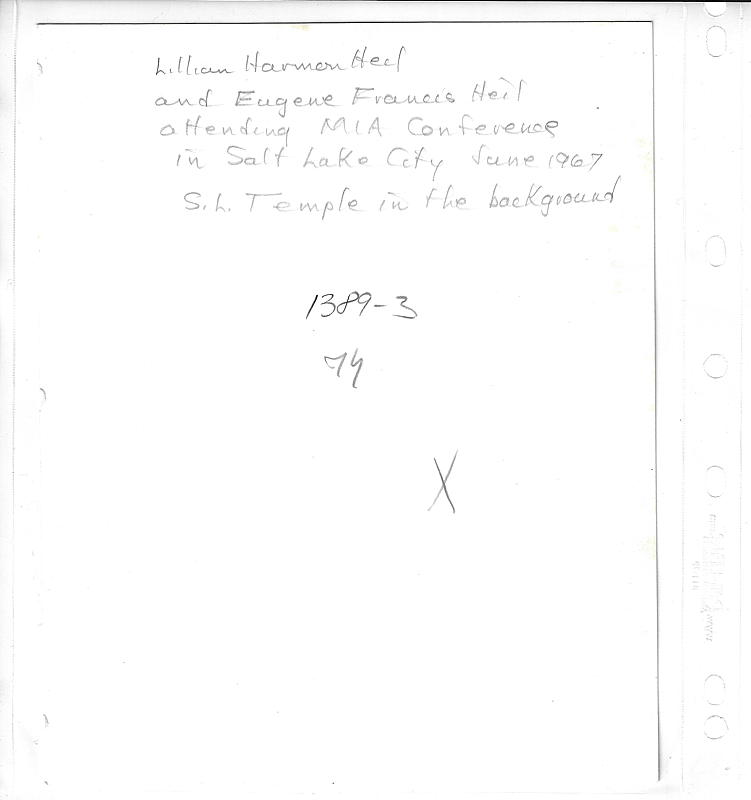 Lillian Harmon Heil
and Eugene Francis Heil
attending MIA Conference
in Salt Lake City June 1967
S.L. Temple in the background
1389-3
74
X